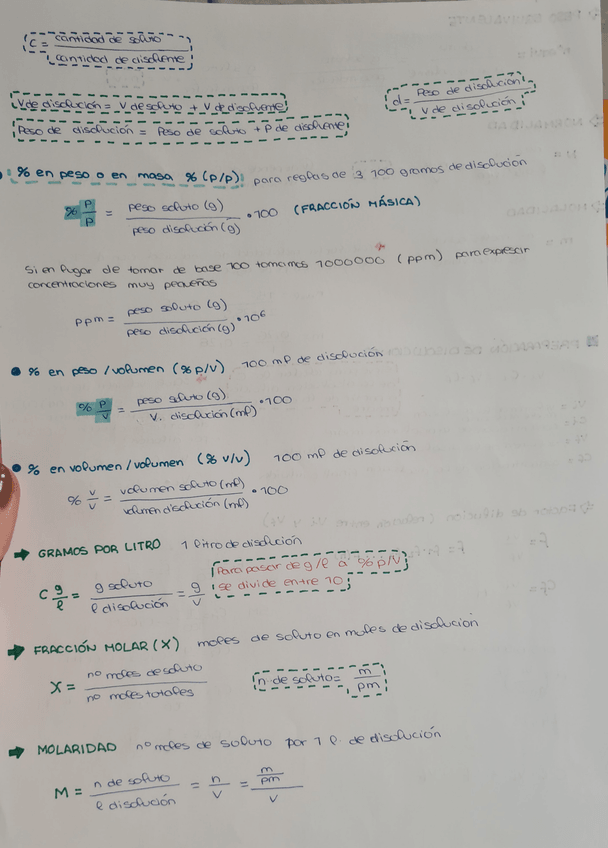 C = cantidad de soluto / cantidad de disolvente
V de disolución = V de soluto + V de disolvente
d = Peso de disolución / V de disolución
Peso de disolución = Peso de soluto + P de disolvente
% en peso o en masa % (p/p) para reglas de 3 100 gramos de disolución
% P/P = peso soluto (g) / peso disolución (g) · 100 (FRACCIÓN MÁSICA)
Si en lugar de tomar de base 100 tomamos 1000000 (ppm) para expresar
concentraciones muy pequeñas
ppm = peso soluto (g) / peso disolución (g) · 10⁶
• % en peso / volumen (% p/v) 100 ml de disolución
% P/V = peso soluto (g) / V. disolución (ml) · 100
• % en volumen / volumen (% v/v) 100 ml de disolución
% v/v = volumen soluto (ml) / volumen disolución (ml) · 100
→ GRAMOS POR LITRO 1 litro de disolución
C g/l = g soluto / l disolución = g/v
Para pasar de g/l a % p/v
se divide entre 10
→ FRACCIÓN MOLAR (X) moles de soluto en moles de disolución
X = nº moles de soluto / nº moles totales
n de soluto = m / pm
→ MOLARIDAD nº moles de soluto por 1 l de disolución
M = n de soluto / l disolución = n / v = m / pm / v